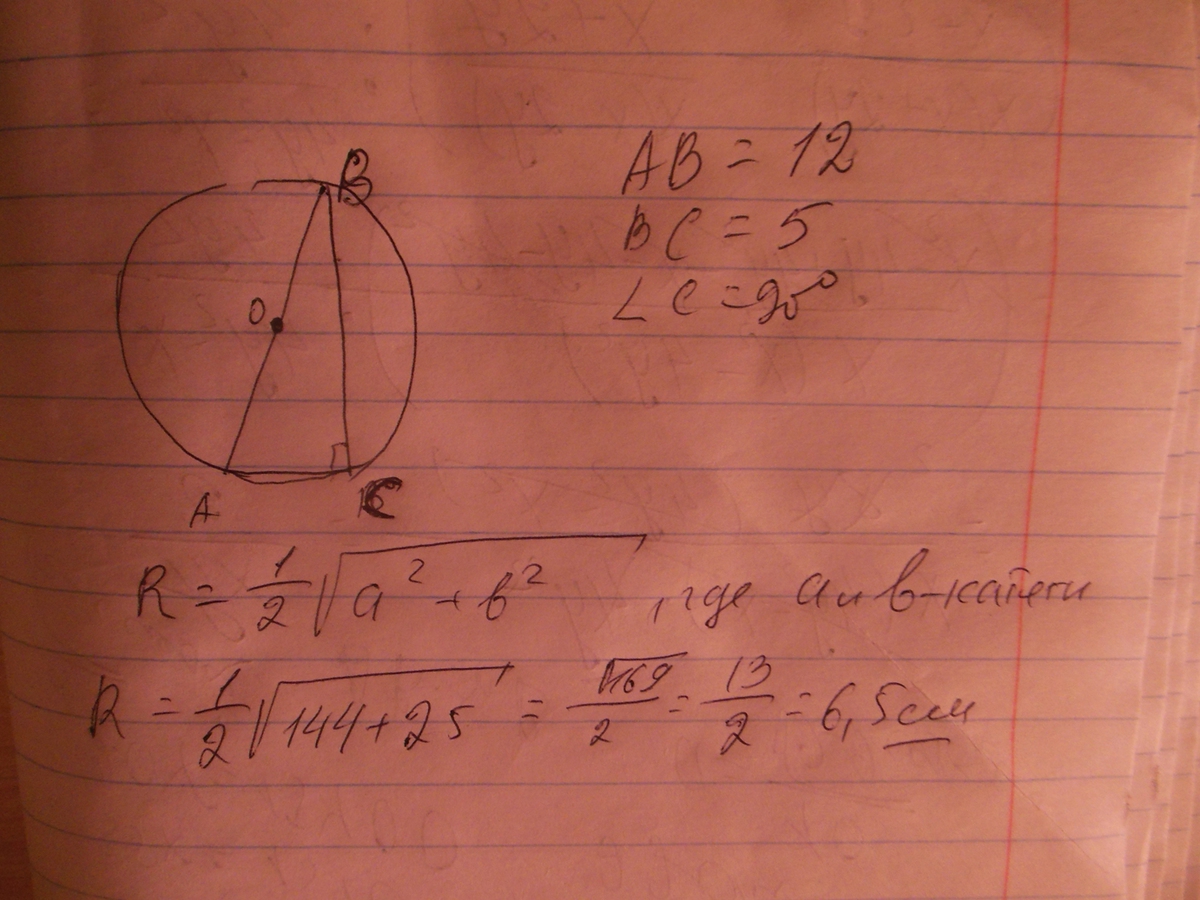 B
O
A
C
AB = 12
BC = 5
∠C = 90°
R = 1/2 √(a² + b²), где a и b - катеты
R = 1/2 √(144 + 25) = √169/2 = 13/2 = 6,5 см